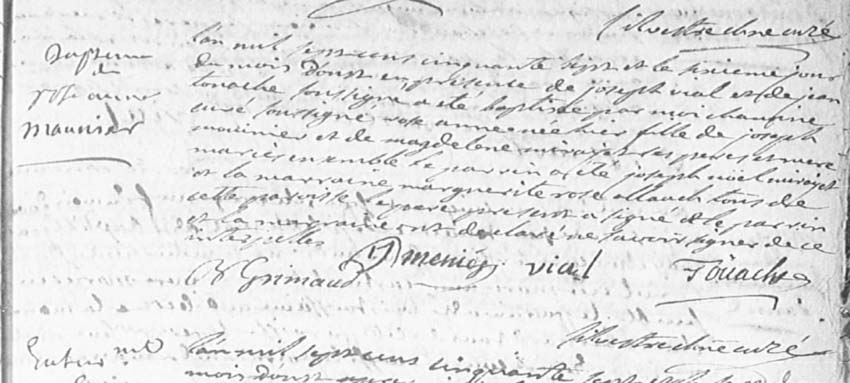 silvestre chne curé
Bapteme
rose anne
mounier
l'an mil sept cens cinquante sept et le sixieme jour
du mois d'oust en presence de joseph vial et de jean
touache soussigné a eté baptisée par moi chanoine
curé soussigné rose anne née hier fille de joseph
mounier et de magdelene mirajet ses pere et mere
mariés ensemble le parrin a eté joseph noel mirajet
et la marraine marguerite rose allauch tous de
cette paroisse le pere present a signé et le parrin
et la marraine ont declaré ne savoir signer de ce
interpellés
J menier vial Toüache
B Grimaud
silvestre chne curé
l'an mil sept cens cinquante sept et le
mois d'oust